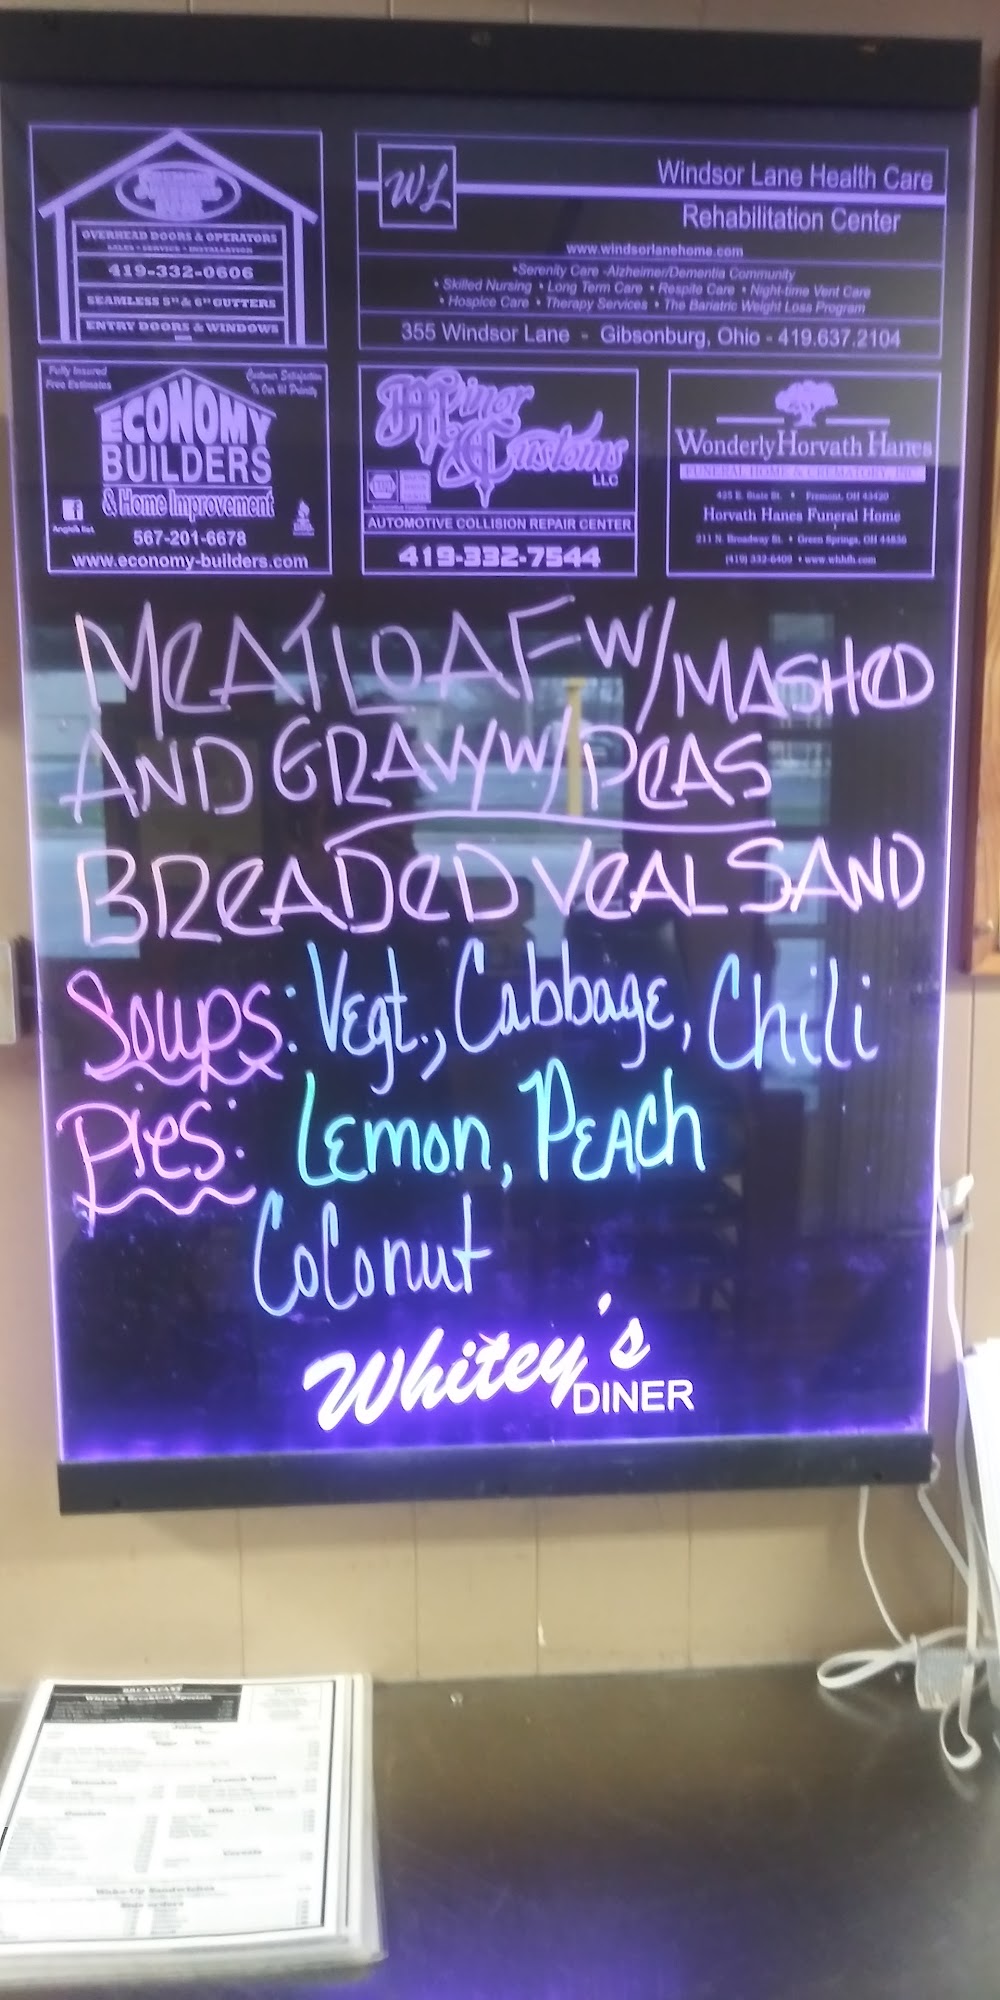 OVERHEAD DOORS & OPERATORS
SALES • SERVICE • INSTALLATION
419-332-0606
SEAMLESS 5" & 6" GUTTERS
ENTRY DOORS & WINDOWS
WL
Windsor Lane Health Care
Rehabilitation Center
www.windsorlanehome.com
•Serenity Care -Alzheimer/Dementia Community
• Skilled Nursing • Long Term Care • Respite Care • Night-time Vent Care
• Hospice Care • Therapy Services • The Bariatric Weight Loss Program
355 Windsor Lane - Gibsonburg, Ohio - 419.637.2104
Fully Insured
Free Estimates
Customer Satisfaction
Is Our #1 Priority
ECONOMY
BUILDERS
& Home Improvement
567-201-6678
www.economy-builders.com
Minor
Customs
LLC
AUTOMOTIVE COLLISION REPAIR CENTER
419-332-7544
Wonderly Horvath Hanes
FUNERAL HOME & CREMATORY, INC.
425 E. State St. • Fremont, OH 43420
Horvath Hanes Funeral Home
211 N. Broadway St. • Green Springs, OH 44836
MEATLOAF W/MASHED
AND GRAVY W/PEAS
BREADED VEAL SAND
Soups: Vegt., Cabbage, Chili
Pies: Lemon, Peach
Coconut
Whitey's
DINER
BREAKFAST
Whitey's Breakfast Specials
Juices
French Toast
Omelets
Cereals
Wake-Up Sandwiches
Side orders